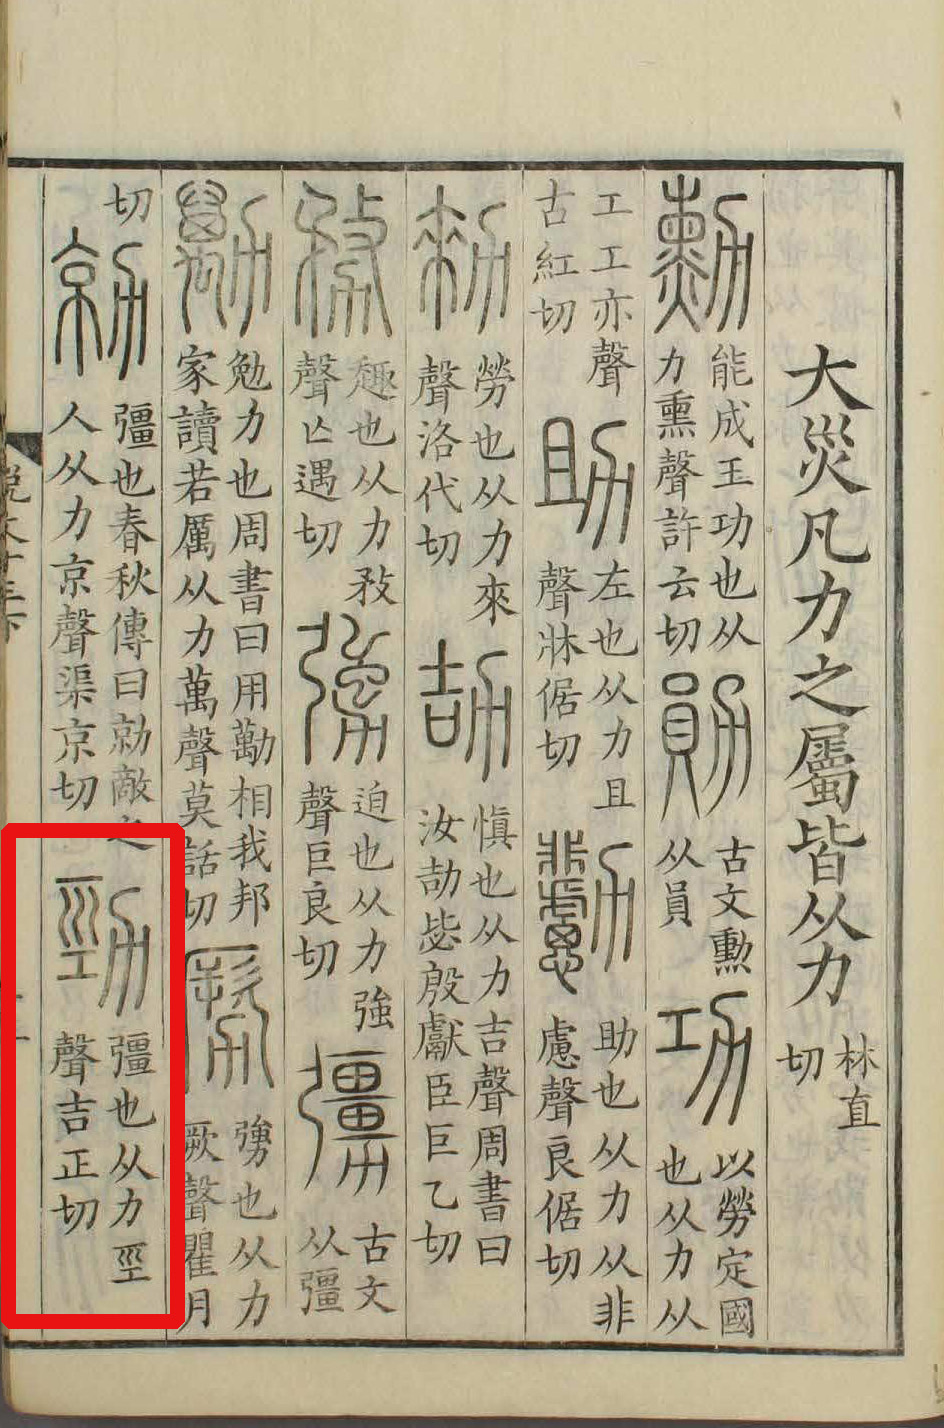 大災凡力之屬皆从力林直切
勳能成王功也从力熏聲許云切勛古文勳从員功以勞定國也从力从
工工亦聲古紅切助左也从力且聲牀倨切勴助也从力从非慮聲良倨切
勑勞也从力來聲洛代切劼愼也从力吉聲周書曰汝劼毖殷獻臣巨乙切
務趣也从力敄聲亾遇切勥迫也从力強聲巨良切𠢍古文从彊
勱勉力也周書曰用勱相我邦家讀若厲从力萬聲莫話切勶勥也从力厥聲瞿月
切勍彊也春秋傳曰勍敵之人从力京聲渠京切勁彊也从力巠聲吉正切
說文十三下